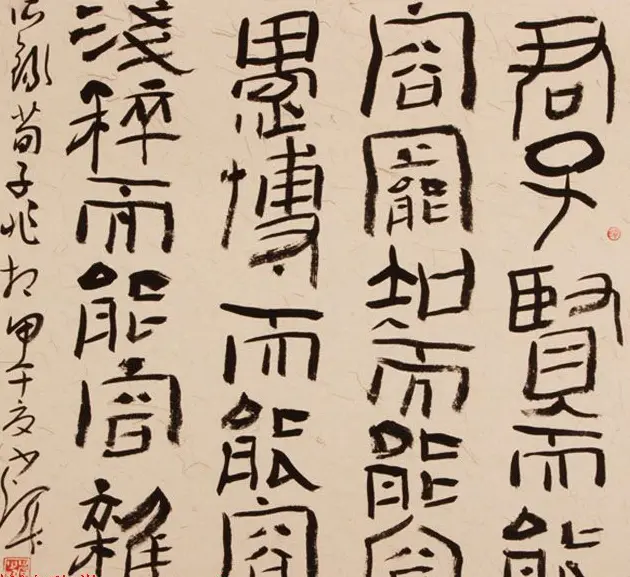 君子賢而能
容罷知而能容
愚愽而能容
淺粹而能容雜
錄荀子非相甲午夏